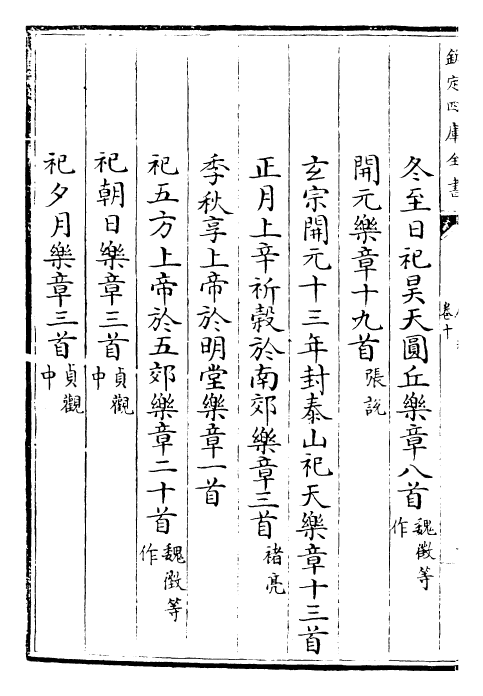 欽定四庫全書
卷十
冬至日祀昊天圓丘樂章八首魏徵等作
開元樂章十九首張説
玄宗開元十三年封泰山祀天樂章十三首
正月上辛祈穀於南郊樂章三首褚亮
季秋享上帝於明堂樂章一首
祀五方上帝於五郊樂章二十首魏徵等作
祀朝日樂章三首貞觀中
祀夕月樂章三首貞觀中